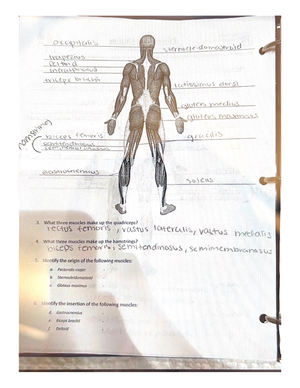 occipitalis
sternocleidomastoid
trapezius
deltoid
infraspinatus
triceps brachii
latissimus dorsi
gluteus medius
gluteus maximus
hamstrings
biceps femoris
gracilis
semitendinosus
semimembranosus
gastrocnemius
soleus
3. What three muscles make up the quadriceps?
rectus femoris, vastus lateralis, vastus medialis
4. What three muscles make up the hamstrings?
biceps femoris, semitendinosus, semimembranosus
5. Identify the origin of the following muscles:
a. Pectoralis major
b. Sternocleidomastoid
c. Gluteus maximus
6. Identify the insertion of the following muscles:
d. Gastrocnemius
e. Biceps brachii
f. Deltoid